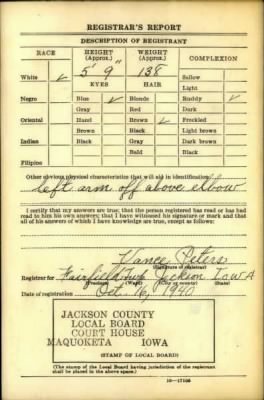 REGISTRAR'S REPORT
DESCRIPTION OF REGISTRANT
RACE HEIGHT (Approx.) WEIGHT (Approx.) COMPLEXION
5' 9" 138
White ✓ Sallow
EYES HAIR Light
Negro Blue ✓ Blonde Ruddy ✓
Gray Red Dark
Oriental Hazel Brown ✓ Freckled
Brown Black Light brown
Indian Black Gray Dark brown
Bald Black
Filipino
Other obvious physical characteristics that will aid in identification
left arm off above elbow
I certify that my answers are true; that the person registered has read or has had
read to him his own answers; that I have witnessed his signature or mark and that
all of his answers of which I have knowledge are true, except as follows:
Vance Peters
(Signature of registrar)
Registrar for Fairfield Twp Jackson Iowa
(Precinct) (Ward) (City or county) (State)
Date of registration Oct. 16, 1940
JACKSON COUNTY
LOCAL BOARD
COURT HOUSE
MAQUOKETA IOWA
(STAMP OF LOCAL BOARD)
(The stamp of the Local Board having jurisdiction of the registrant
shall be placed in the above space.)
16—17105